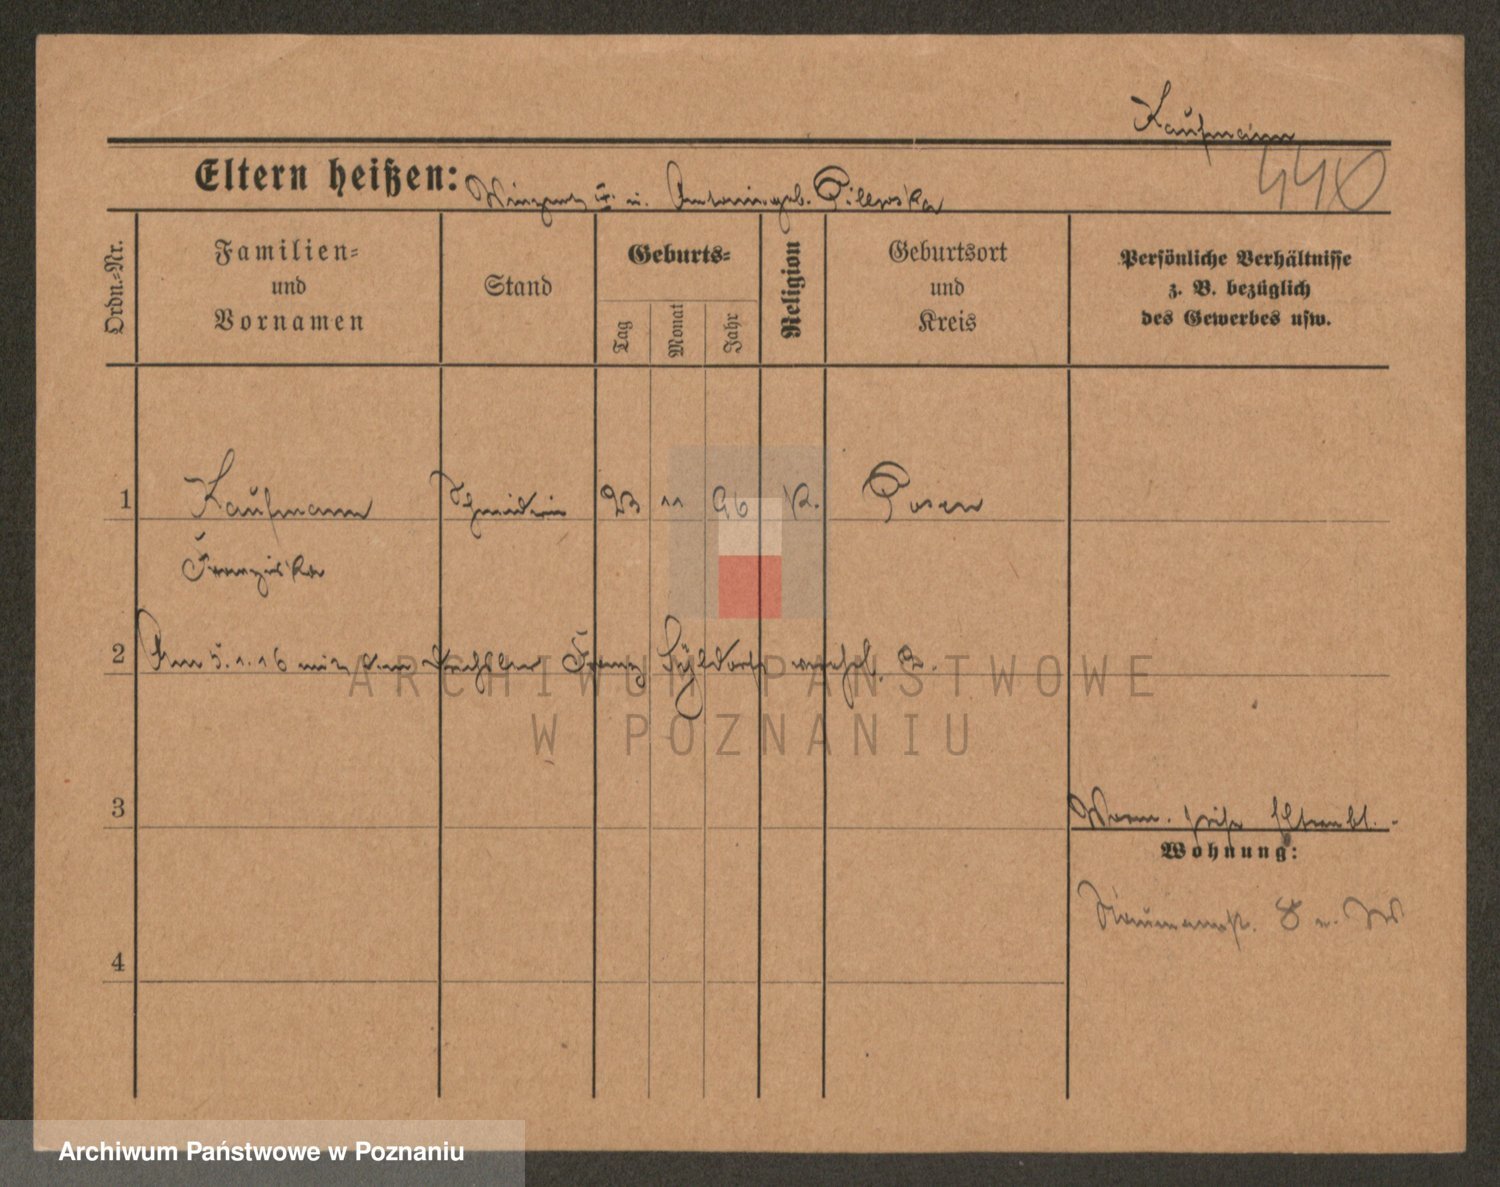 Kaufmann
440
Eltern heißen: Winzent u. Antonin geb. Pilewska
Ordn.-Nr.
Familien-
und
Vornamen
Stand
Geburts-
Tag
Monat
Jahr
Religion
Geburtsort
und
Kreis
Persönliche Verhältnisse
z. B. bezüglich
des Gewerbes usw.
1 Kaufmann 23 11 96 K. Posen
Franziska
2 Am 5.1.16 mit dem Franz
3
Wohnung:
Naumannstr. 8
4
ARCHIWUM PAŃSTWOWE
W POZNANIU
Archiwum Państwowe w Poznaniu